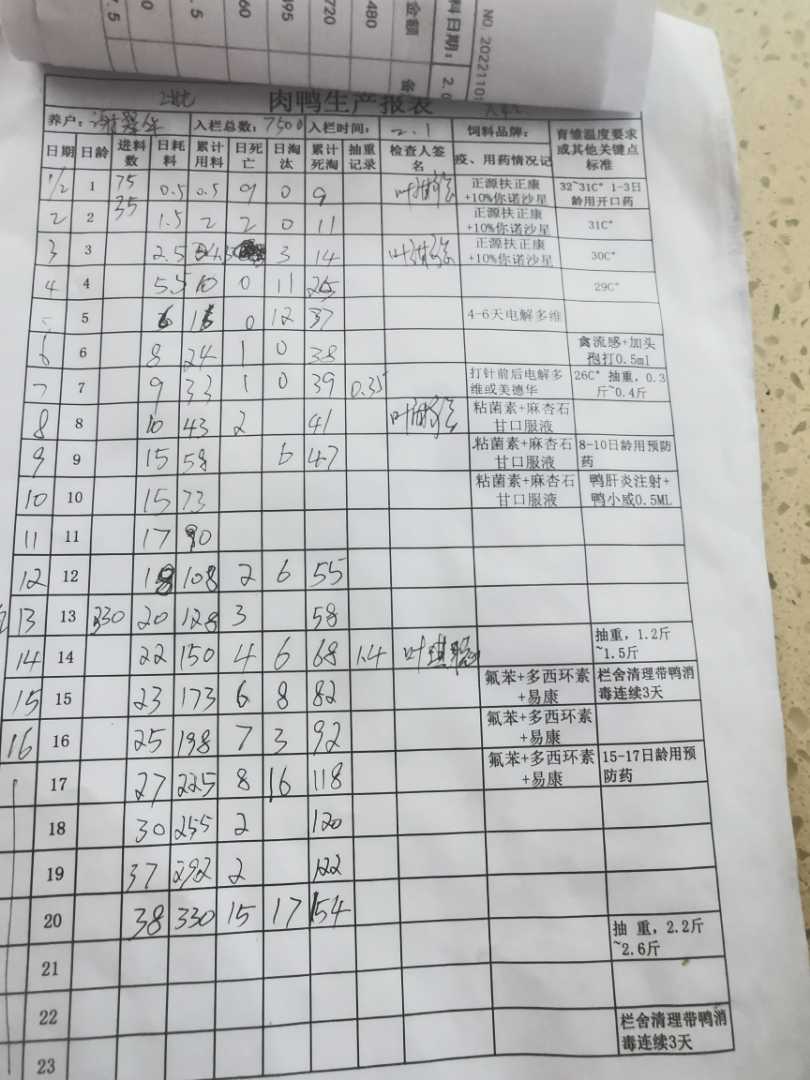 NO 20221101
料日期: 2.
金额
480
720
495
60
.5
0
7.5
肉鸭生产报表
养户: 入栏总数: 7500 入栏时间: 2.1 饲料品牌: 育雏温度要求或其他关键点标准
日期 日龄 进料数 日耗料 累计用料 日死亡 日淘汰 累计死淘 抽重记录 检查人签名 疫、用药情况记
1/2 1 75 0.5 0.5 9 0 9 正源扶正康+10%你诺沙星 32~31C° 1-3日龄用开口药
2 2 35 1.5 2 2 0 11 正源扶正康+10%你诺沙星 31C°
3 3 2.5 3 14 正源扶正康+10%你诺沙星 30C°
4 4 5.5 10 0 11 25 29C°
5 6 16 0 12 37 4-6天电解多维
6 6 8 24 1 0 38 禽流感+加头孢打0.5ml
7 7 9 33 1 0 39 0.35 打针前后电解多维或美德华 26C° 抽重,0.3斤~0.4斤
8 8 10 43 2 41 粘菌素+麻杏石甘口服液
9 9 15 58 6 47 粘菌素+麻杏石甘口服液 8-10日龄用预防药
10 10 15 73 粘菌素+麻杏石甘口服液 鸭肝炎注射+鸭小或0.5ML
11 11 17 90
12 12 18 108 2 6 55
13 13 330 20 128 3 58
14 14 22 150 4 6 68 1.4 叶琪 抽重,1.2斤~1.5斤
15 15 23 173 6 8 82 氟苯+多西环素+易康 栏舍清理带鸭消毒连续3天
16 16 25 198 7 3 92 氟苯+多西环素+易康
17 27 225 8 16 118 氟苯+多西环素+易康 15-17日龄用预防药
18 30 255 2 120
19 37 292 2 122
20 38 330 15 17 154
抽 重,2.2斤~2.6斤
21
22
栏舍清理带鸭消毒连续3天
23